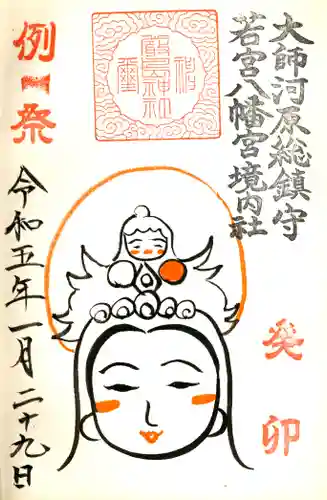 大師河原総鎮守
若宮八幡宮境内社
厳島神社
例祭
令和五年一月二十九日
癸卯